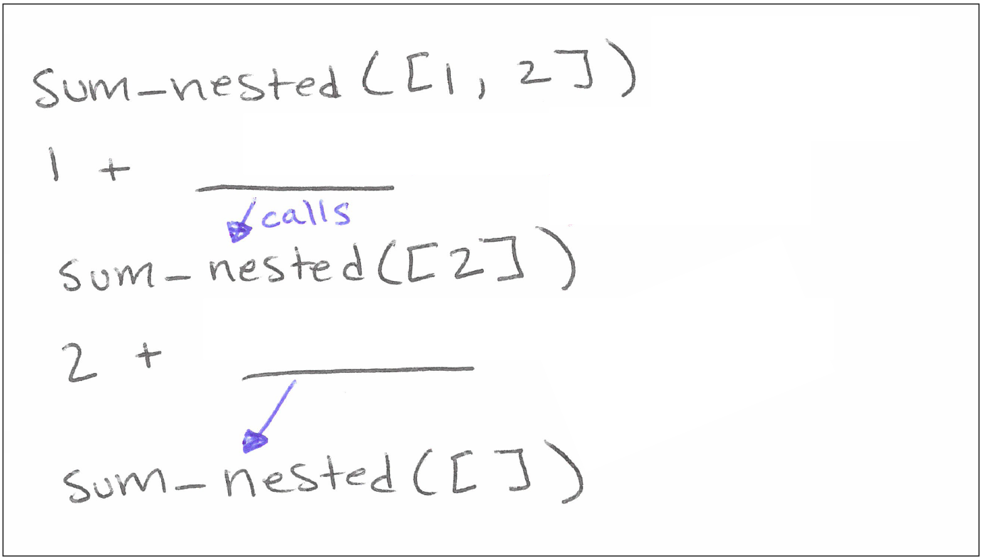 sum-nested([1, 2])
1 +
calls
sum-nested([2])
2 +
sum-nested([])